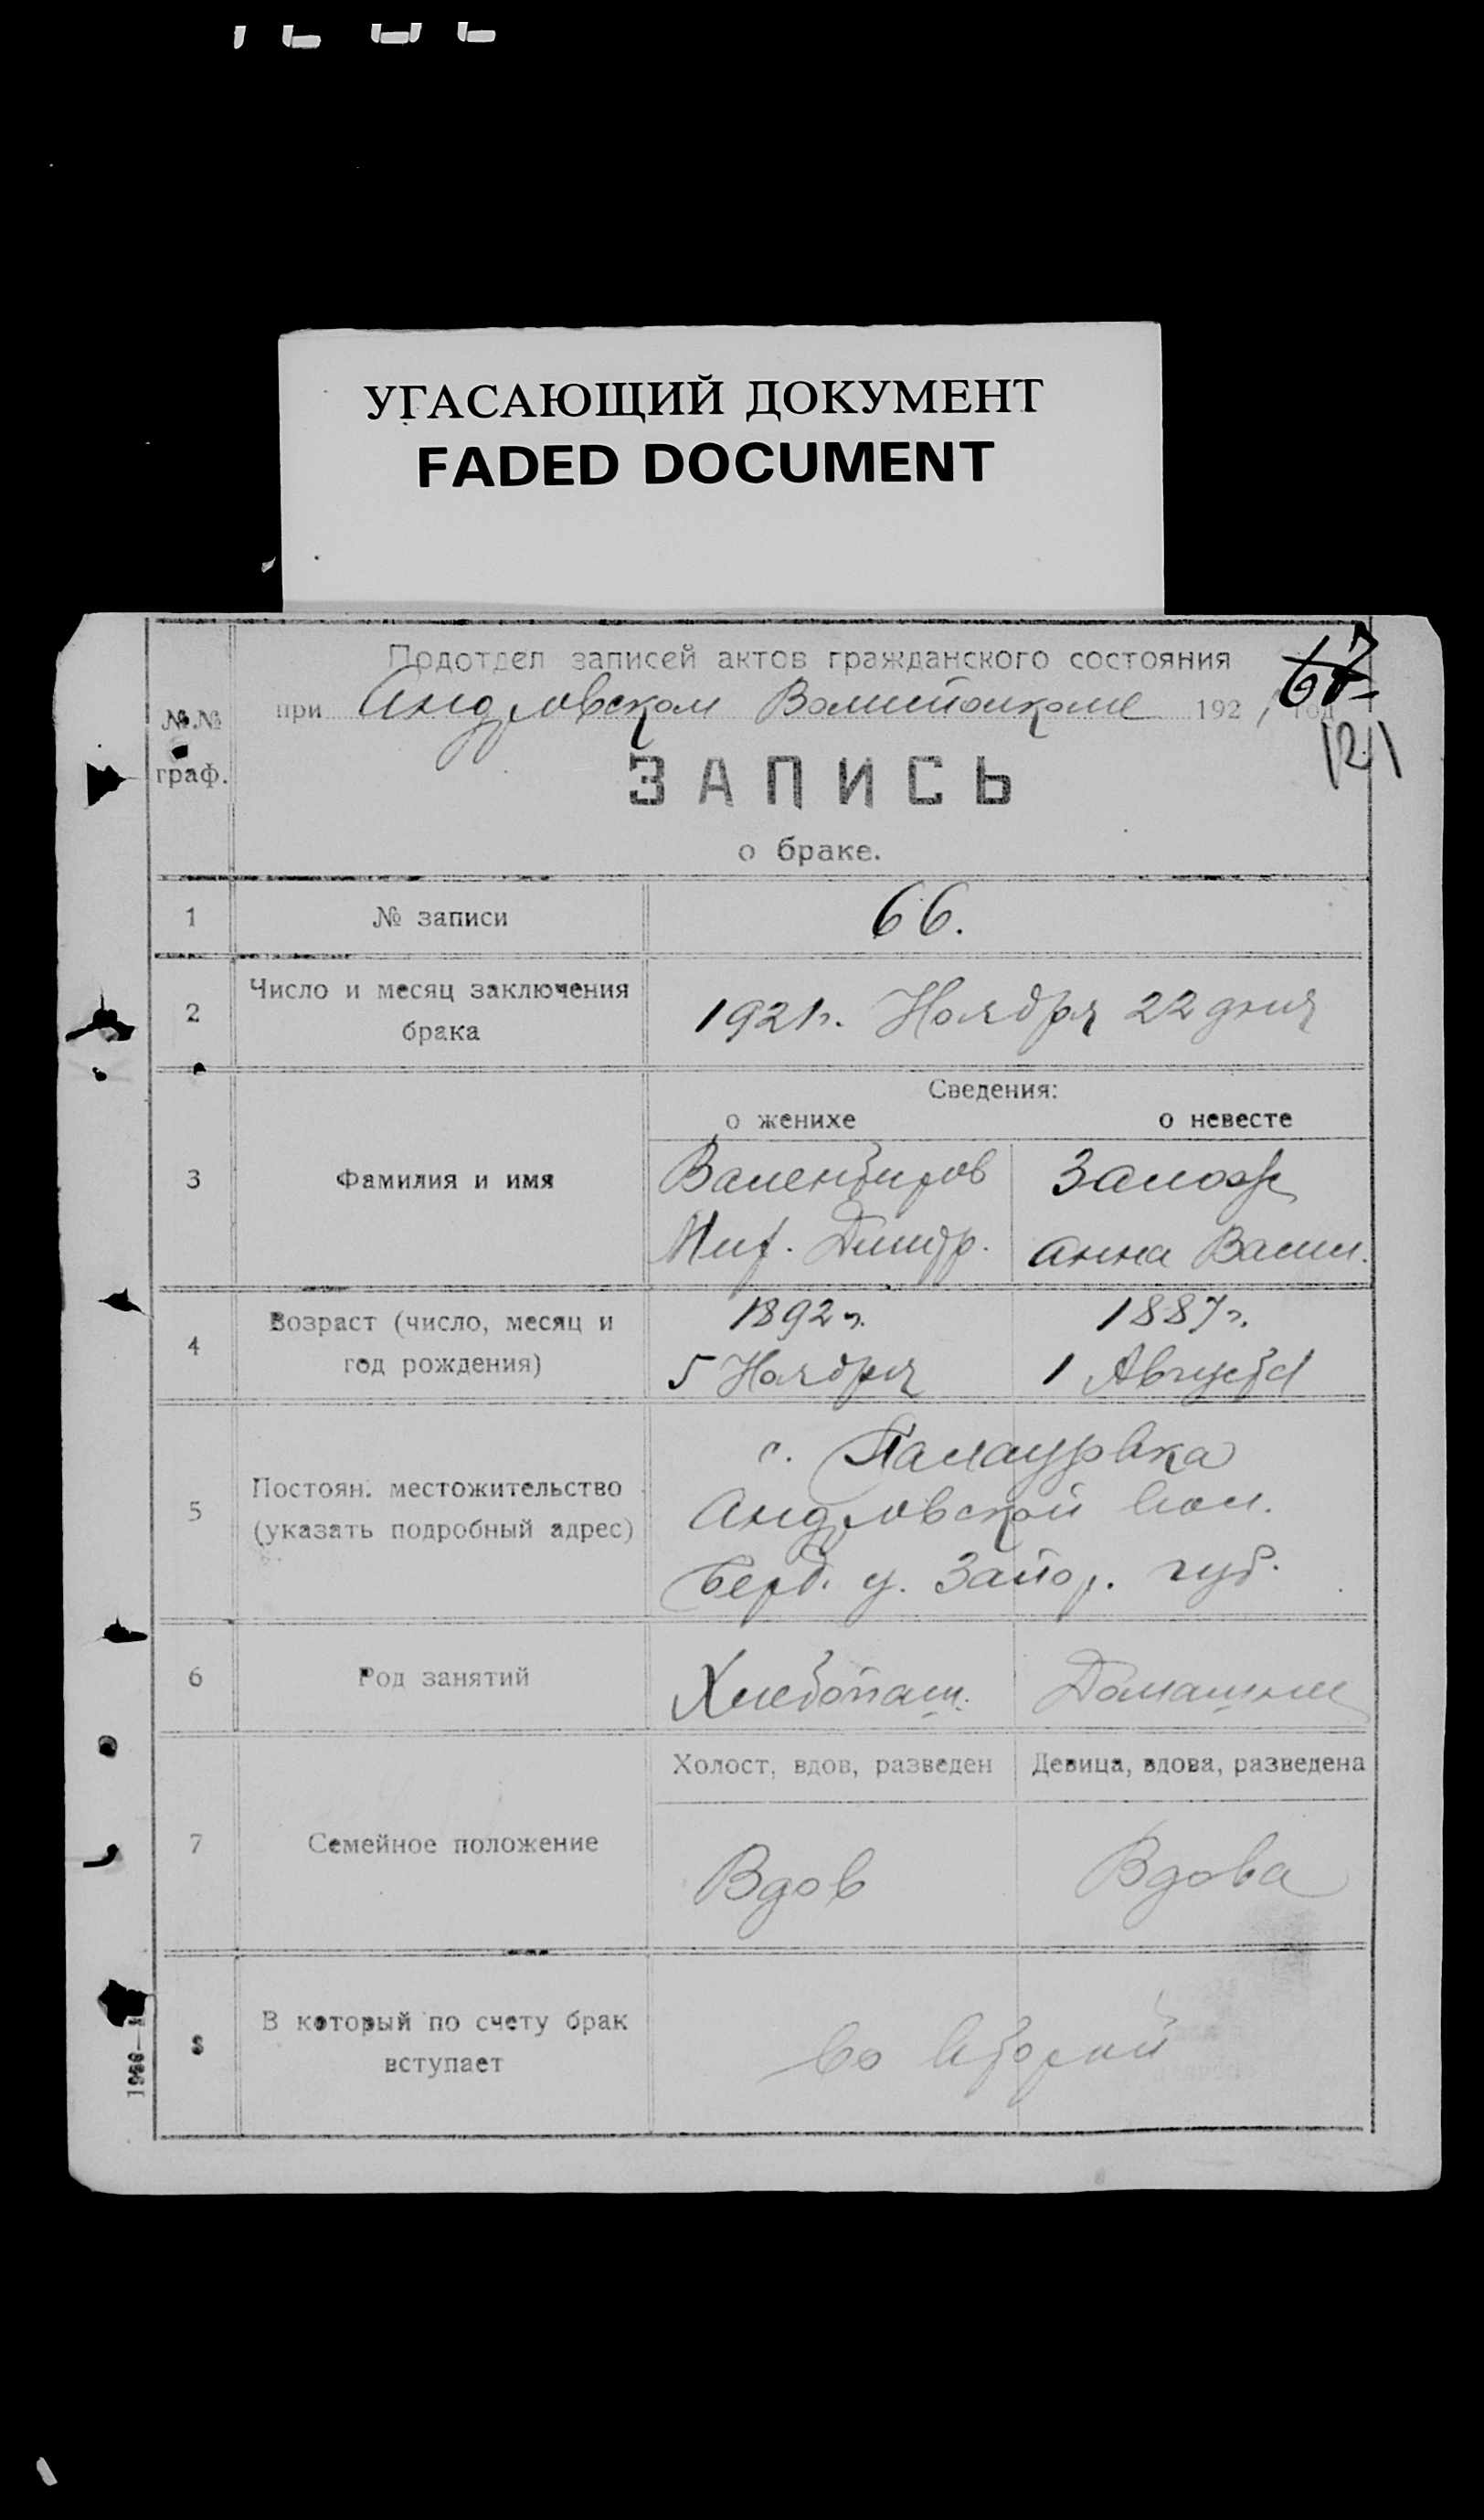 УГАСАЮЩИЙ ДОКУМЕНТ
FADED DOCUMENT
67
Подотдел записей актов гражданского состояния
при Андровском Волисполкоме 1921 год
121
№.№ граф.
ЗАПИСЬ
о браке.
1 № записи 66.
2 Число и месяц заключения брака
1921г. Ноября 22 дня
Сведения:
о женихе о невесте
3 Фамилия и имя
Мит. Дмитр. Анна Васил.
4 Возраст (число, месяц и год рождения)
1892 г. 1887 г.
5 Ноября 1 Августа
5 Постоян. местожительство (указать подробный адрес)
с. Палауровка
Андровской вол.
Берд. у. Запор. губ.
6 Род занятий Хлебопаш. Домашние
Холост, вдов, разведен Девица, вдова, разведена
7 Семейное положение Вдов Вдова
8 В который по счету брак вступает
во второй